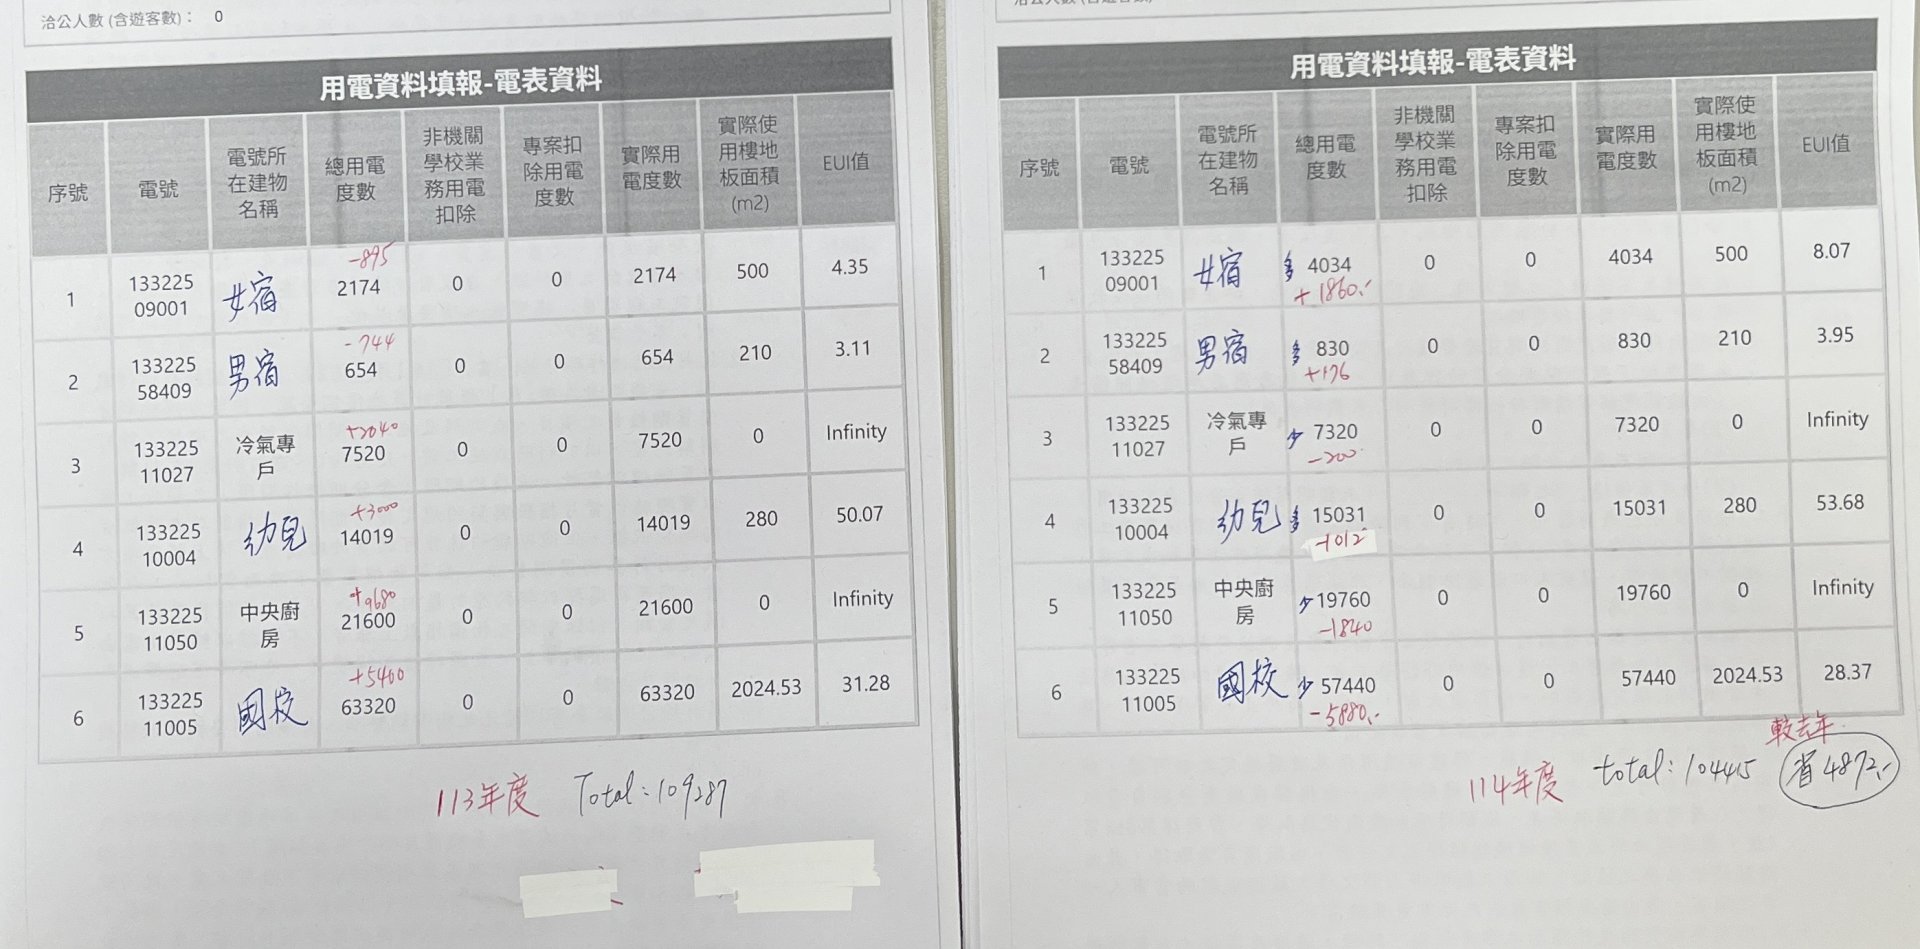 洽公人數 (含遊客數)： 0
用電資料填報-電表資料
序號 電號 電號所在建物名稱 總用電度數 非機關學校業務用電扣除 專案扣除用電度數 實際用電度數 實際使用樓地板面積(m2) EUI值
-895
1 13322509001 女宿 2174 0 0 2174 500 4.35
-744
2 13322558409 男宿 654 0 0 654 210 3.11
+2040
3 13322511027 冷氣專戶 7520 0 0 7520 0 Infinity
+3000
4 13322510004 幼兒 14019 0 0 14019 280 50.07
+9680
5 13322511050 中央廚房 21600 0 0 21600 0 Infinity
+5400
6 13322511005 國校 63320 0 0 63320 2024.53 31.28
113年度 Total:109287
用電資料填報-電表資料
序號 電號 電號所在建物名稱 總用電度數 非機關學校業務用電扣除 專案扣除用電度數 實際用電度數 實際使用樓地板面積(m2) EUI值
1 13322509001 女宿 多 4034 0 0 4034 500 8.07
+1860.-
2 13322558409 男宿 多 830 0 0 830 210 3.95
+176
3 13322511027 冷氣專戶 少 7320 0 0 7320 0 Infinity
-200
4 13322510004 幼兒 多 15031 0 0 15031 280 53.68
-1012
5 13322511050 中央廚房 少 19760 0 0 19760 0 Infinity
-1840
6 13322511005 國校 少 57440 0 0 57440 2024.53 28.37
-5880.-
較去年
114年度 total:104415 省4872.-